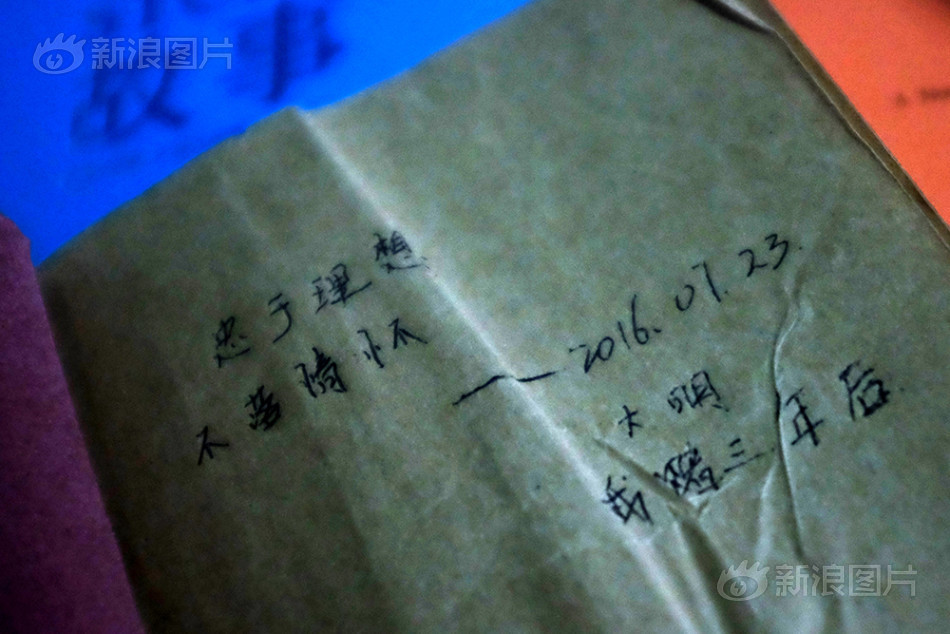 新浪图片
故事
忠于理想
不苟情怀
——2016.07.23.
大明
三年后
新浪图片